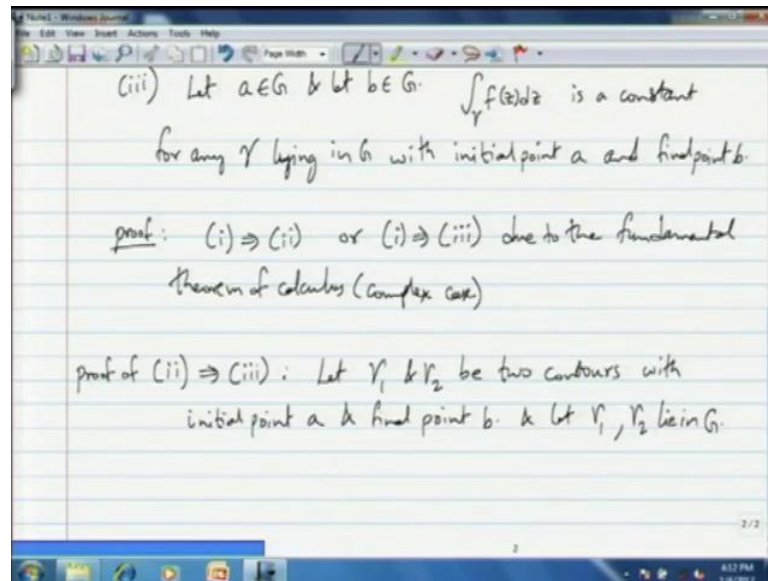 Note1 - Windows Journal
File Edit View Insert Actions Tools Help
Page Width
(iii) Let a ∈ G & let b ∈ G. ∫γ f(z)dz is a constant
for any γ lying in G with initial point a and final point b.
proof: (i) ⇒ (ii) or (i) ⇒ (iii) due to the fundamental
theorem of calculus (complex case)
proof of (ii) ⇒ (iii): Let γ1 & γ2 be two contours with
initial point a & final point b. & let γ1, γ2 lie in G.
2/2
2
4:12 PM